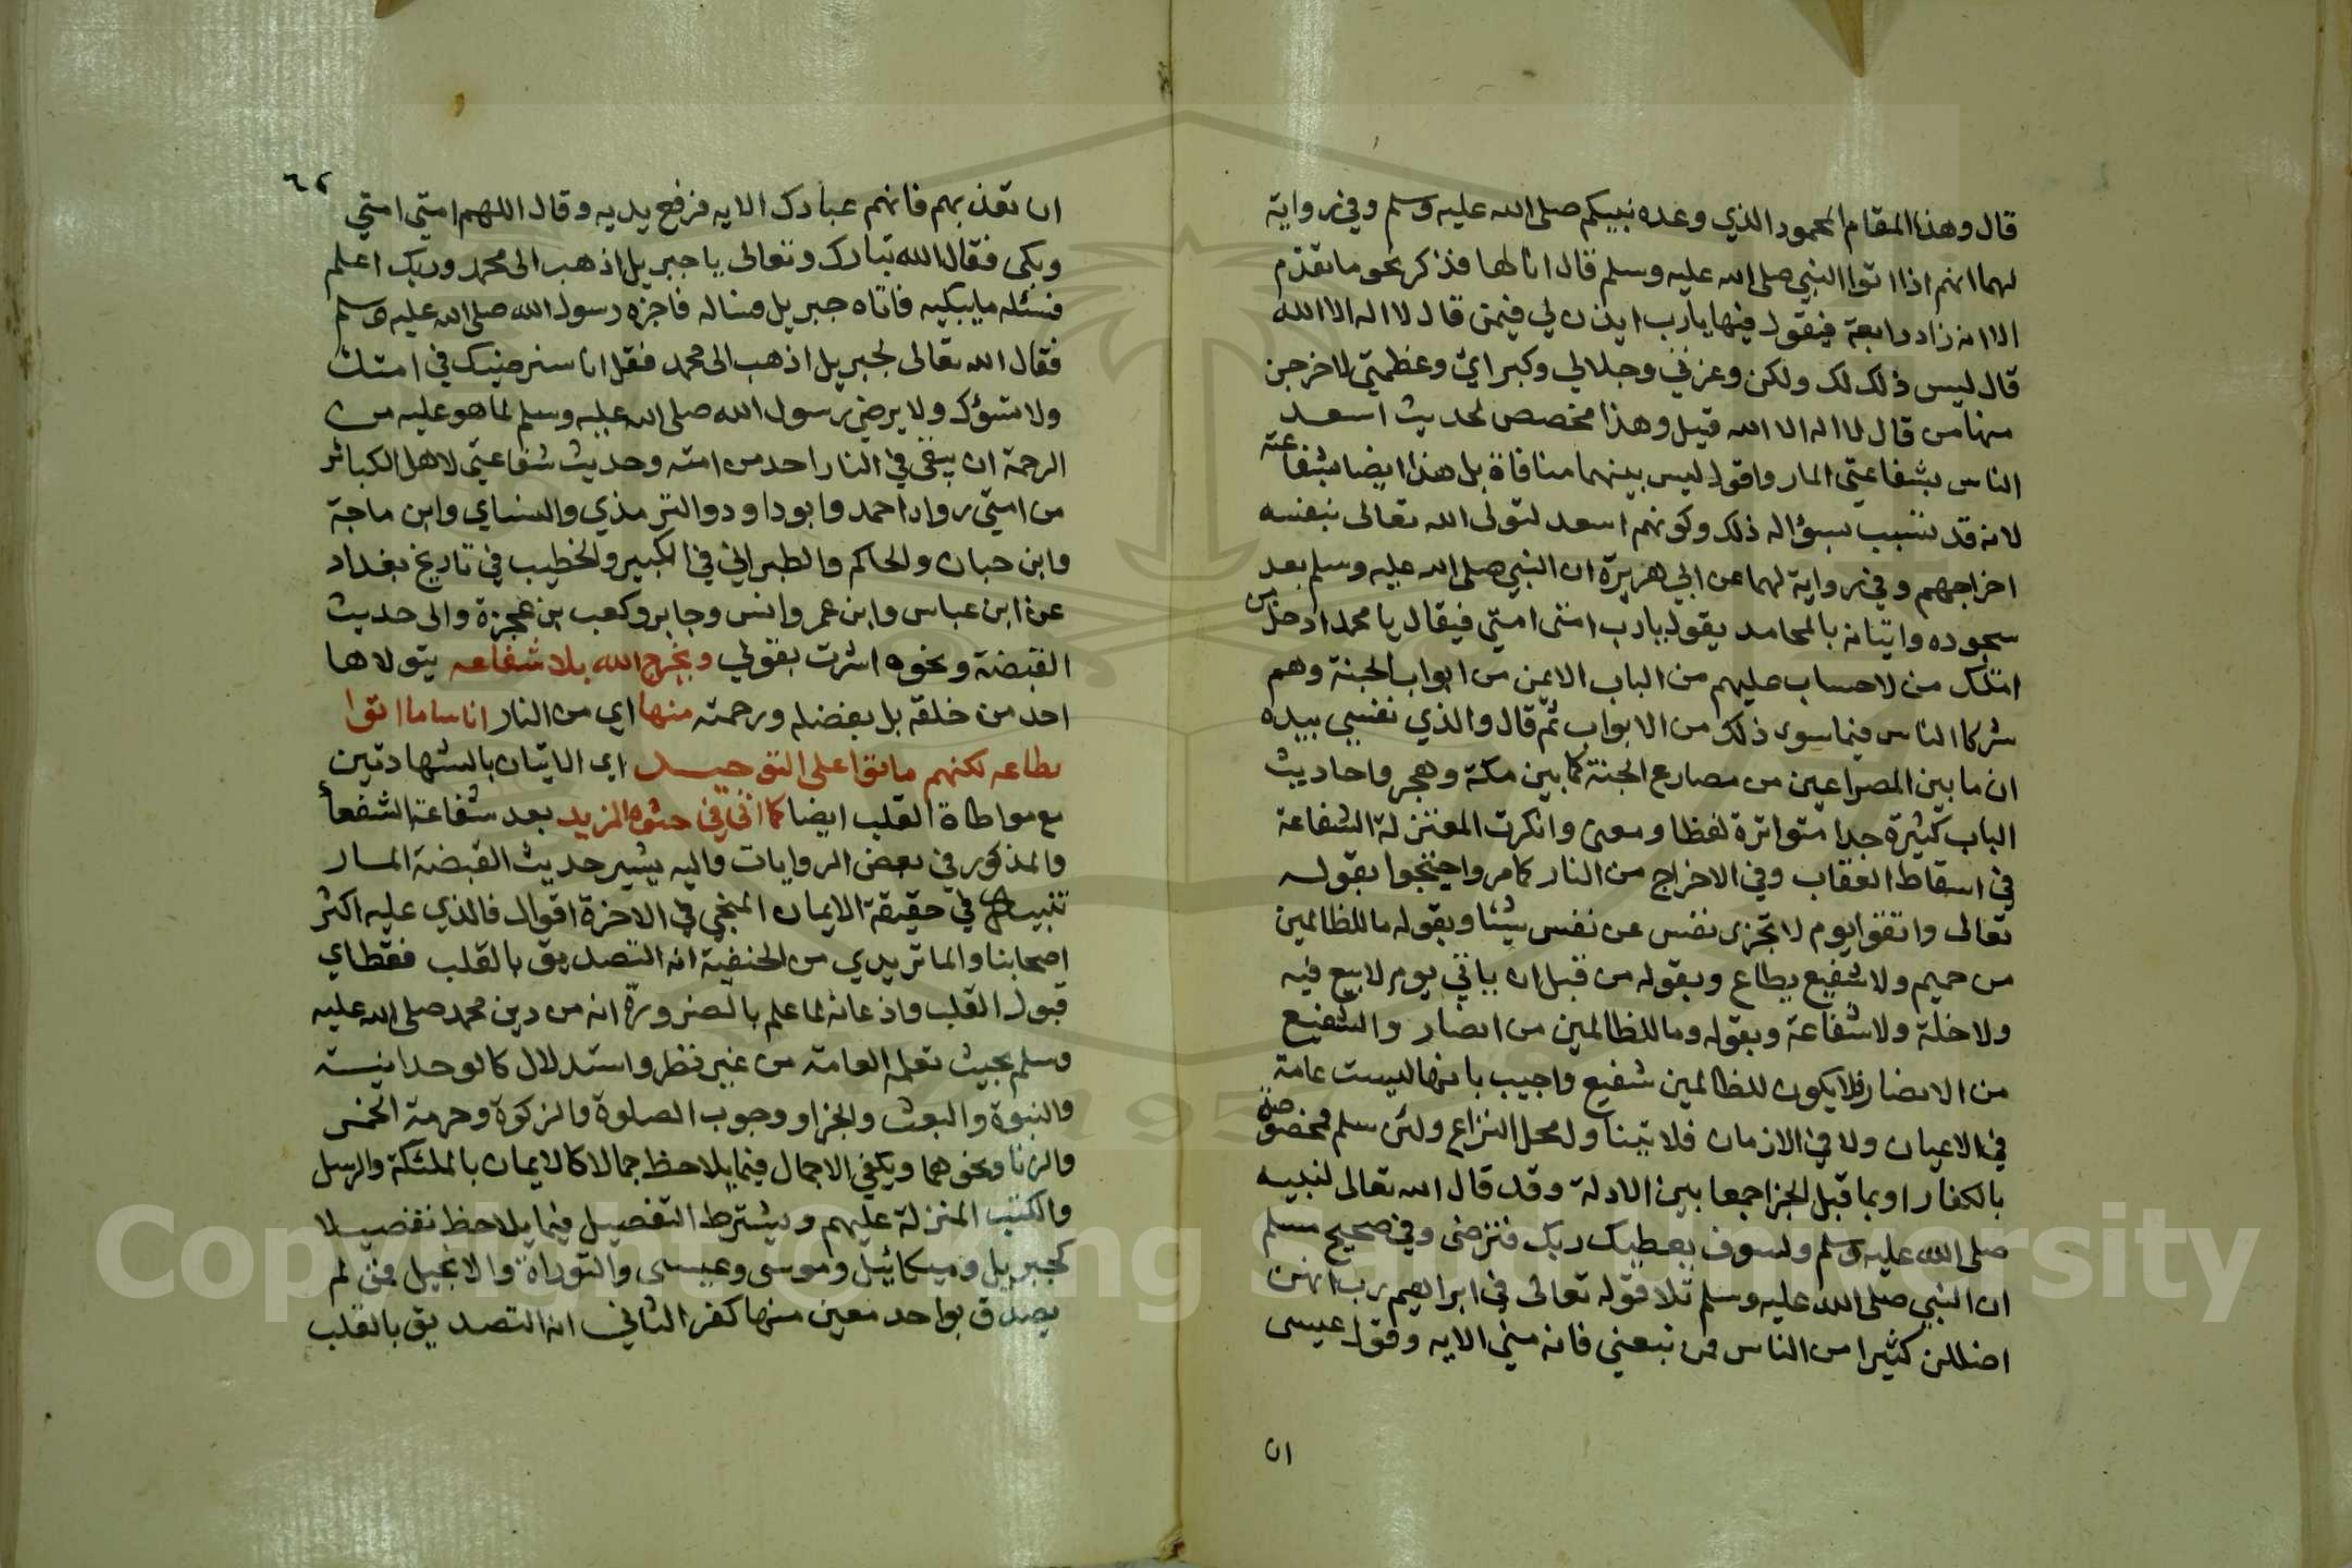 قال وهذا المقام المحمود الذي وعده نبيكم صلى الله عليه وسلم وفي رواية
لهما انهم اذا اتوا النبي صلى الله عليه وسلم قال انا لها فذكر نحو ما تقدم
الا انه زاد رابعة فيقول فيها يا رب ايذن لي فيمن قال لا اله الا الله
قال ليس ذلك لك ولكن وعزتي وجلالي وكبرائي وعظمتي لاخرجن
منها من قال لا اله الا الله قيل وهذا مخصص لحديث اسعد
الناس بشفاعتي المار واقول ليس بينهما منافاة بل هذا ايضا بشفاعته
لانه قد تسبب بسؤاله ذلك وكونهم اسعد لتولى الله تعالى بنفسه
اخراجهم وفي رواية لهما عن ابي هريرة ان النبي صلى الله عليه وسلم بعد
سجوده واتيانه بالمحامد يقول يا رب امتي امتي فيقال يا محمد ادخل من
امتك من لا حساب عليهم من الباب الايمن من ابواب الجنة وهم
شركا الناس فيما سوى ذلك من الابواب ثم قال والذي نفسي بيده
ان ما بين المصراعين من مصارع الجنة كما بين مكة وهجر واحاديث
الباب كثيرة جدا متواترة لفظا ومعنى وانكرت المعتزلة الشفاعة
في اسقاط العقاب وفي الاخراج من النار كما مر واحتجوا بقوله
تعالى واتقوا يوم لا تجزى نفس عن نفس شيئا وبقوله ما للظالمين
من حميم ولا شفيع يطاع وبقوله من قبل ان ياتي يوم لا بيع فيه
ولا خلة ولا شفاعة وبقوله وما للظالمين من انصار والشفيع
من الانصار فلا يكون للظالمين شفيع واجيب بانها ليست عامة
في الاعيان ولا في الازمان فلا تتناول محل النزاع ولئن سلم فمخصوصة
بالكفار او بما قبل الجزا جمعا بين الادلة وقد قال الله تعالى لنبيه
صلى الله عليه وسلم ولسوف يعطيك ربك فترضى وفي صحيح مسلم
ان النبي صلى الله عليه وسلم تلا قوله تعالى في ابراهيم رب انهن
اضللن كثيرا من الناس فمن تبعني فانه مني الايه وقول عيسى
ان
٦٢
ان تعذبهم فانهم عبادك الايه فرفع يديه وقال اللهم امتي امتي
وبكى فقال الله تبارك وتعالى يا جبريل اذهب الى محمد وربك اعلم
فسئله ما يبكيه فاتاه جبريل فساله فاخبره رسول الله صلى الله عليه وسلم
فقال الله تعالى لجبريل اذهب الى محمد فقل انا سنرضيك في امتك
ولا نسؤك ولا يرضى رسول الله صلى الله عليه وسلم لما هو عليه من
الرحمة ان يبقى في النار احد من امته وحديث شفاعتي لاهل الكبائر
من امتي رواه احمد وابو داود والترمذي والنساي وابن ماجة
وابن حبان والحاكم والطبراني في الكبير والخطيب في تاريخ بغداد
عن ابن عباس وابن عمر وانس وجابر وكعب بن عجزة والى حديث
القبضة ونحوه اشرت بقولي ويخرج الله بلا شفاعه يتولاها
احد من خلقه بل بفضله ورحمته منها اي من النار اناسا ما اتوا
بطاعه لكنهم ماتوا على التوحيد اي الاتيان بالشهادتين
مع مواطاة القلب ايضا كما اتى في حثوه المزيد بعد شفاعة الشفعا
والمذكور في بعض الروايات واليه يشير حديث القبضة المار
تنبيه في حقيقة الايمان المنجي في الاخرة اقوال فالذي عليه اكثر
اصحابنا والماتريدي من الحنفية انه التصديق بالقلب فقط اي
قبول القلب واذعانه لما علم بالضرورة انه من دين محمد صلى الله عليه
وسلم بحيث تعلمه العامة من غير نظر واستدلال كالوحدانية
والنبوة والبعث والجزا ووجوب الصلوة والزكوة وحرمة الخمر
والزنا ونحوهما ويكفي الاجمال فيما يلاحظ جمالا كالايمان بالملئكة والرسل
والكتب المنزلة عليهم ويشترط التفصيل فيما يلاحظ تفصيلا
كجبريل وميكائيل وموسى وعيسى والتوراة والانجيل فمن لم
يصدق بواحد معين منها كفر الثاني انه التصديق بالقلب
Copyright © King Saud University